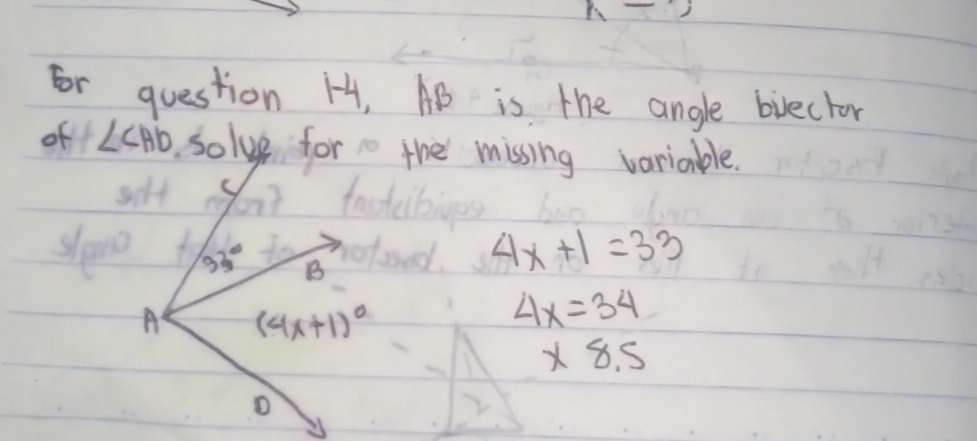 For question 1-4, AB is the angle bisector
of ∠CAD. Solve for the missing variable.
C
33°
B
A
(4x+1)°
D
4x+1=33
4x=34
x 8.5